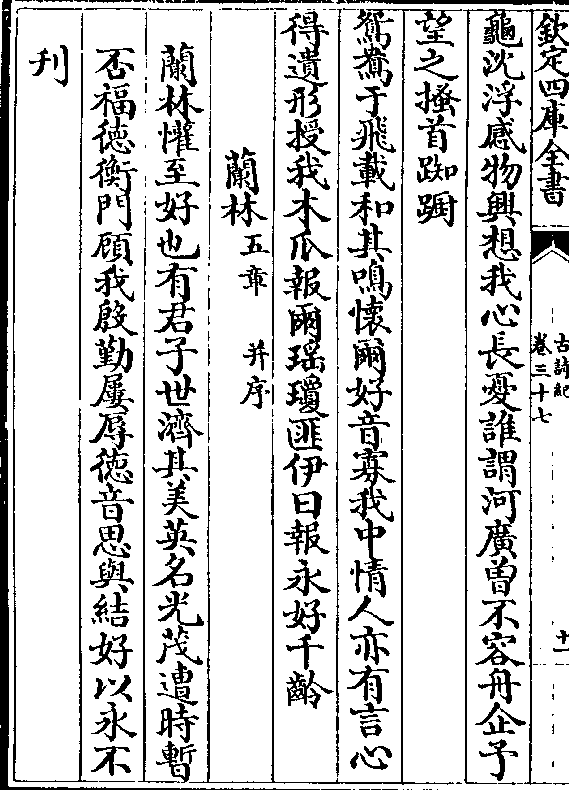 欽定四庫全書
古詩紀
卷三十七
十一
龜沈浮感物興想我心長憂誰謂河廣曽不容舟企予
望之搔首踟蹰
鴛鴦于飛載和其鳴懷爾好音寡我中情人亦有言心
得遺形授我木瓜報爾瑶瓊匪伊曰報永好千齡
蘭林五章 并序
蘭林懽至好也有君子世濟其美英名光茂遭時暫
否福徳衡門顧我殷勤屢辱徳音思與結好以永不
刋